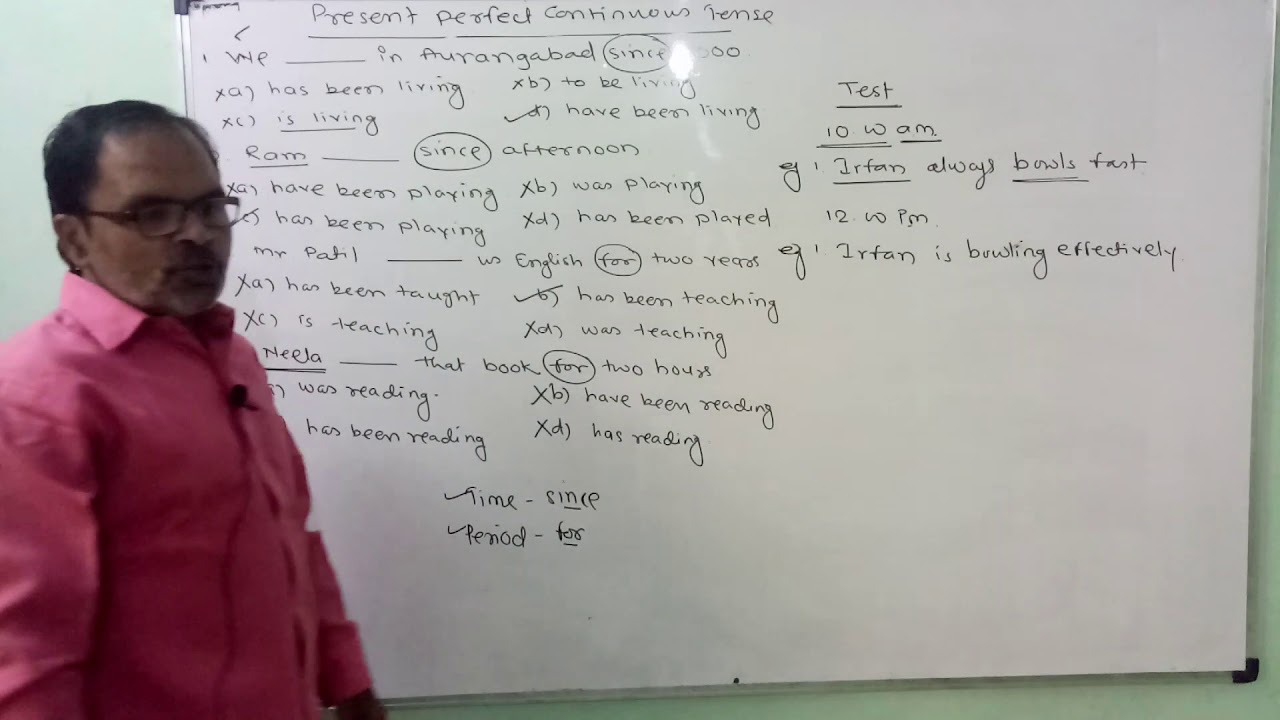 Present Perfect Continuous Tense
1. We ______ in Aurangabad since 000
xa) has been living xb) to be living
xc) is living d) have been living
Ram ______ since afternoon
xa) have been playing xb) was playing
c) has been playing xd) has been played
mr Patil ______ us English for two years
xa) has been taught b) has been teaching
xc) is teaching xd) was teaching
Neela ______ that book for two hours
) was reading. xb) have been reading
has been reading xd) has reading
Time - since
Period - for
Test
10.00 am.
eg 1. Irfan always bowls fast
12.00 Pm.
eg 1. Irfan is bowling effectively.